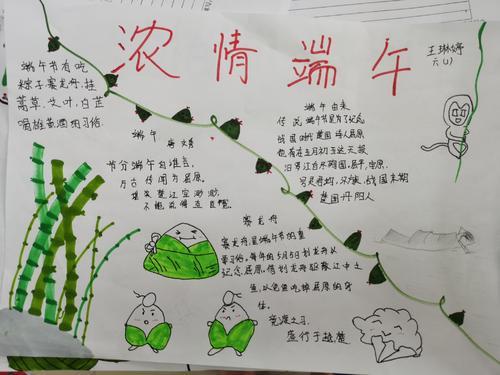 浓情端午
王琳婷
六(1)
端午节有吃
粽子,赛龙舟,挂
菖草、艾叶,白芷
喝雄黄酒的习俗.
端午
唐 文秀
节分端午自谁言,
万古传闻为屈原.
堪笑楚江空渺渺,
不能洗得直臣冤.
端午由来
传说端午节是为了纪念
战国时代楚国诗人屈原
他在五月初五这天投
汨罗江自尽殉国,屈平,字原,
战国末期
楚国丹阳人
赛龙舟
赛龙舟,是端午节的重
要习俗,每年的5月5日划龙舟以
纪念屈原.借划龙舟驱散江中之
鱼,以免鱼吃掉屈原的身
体.
竞渡之习,
盛行于越楚